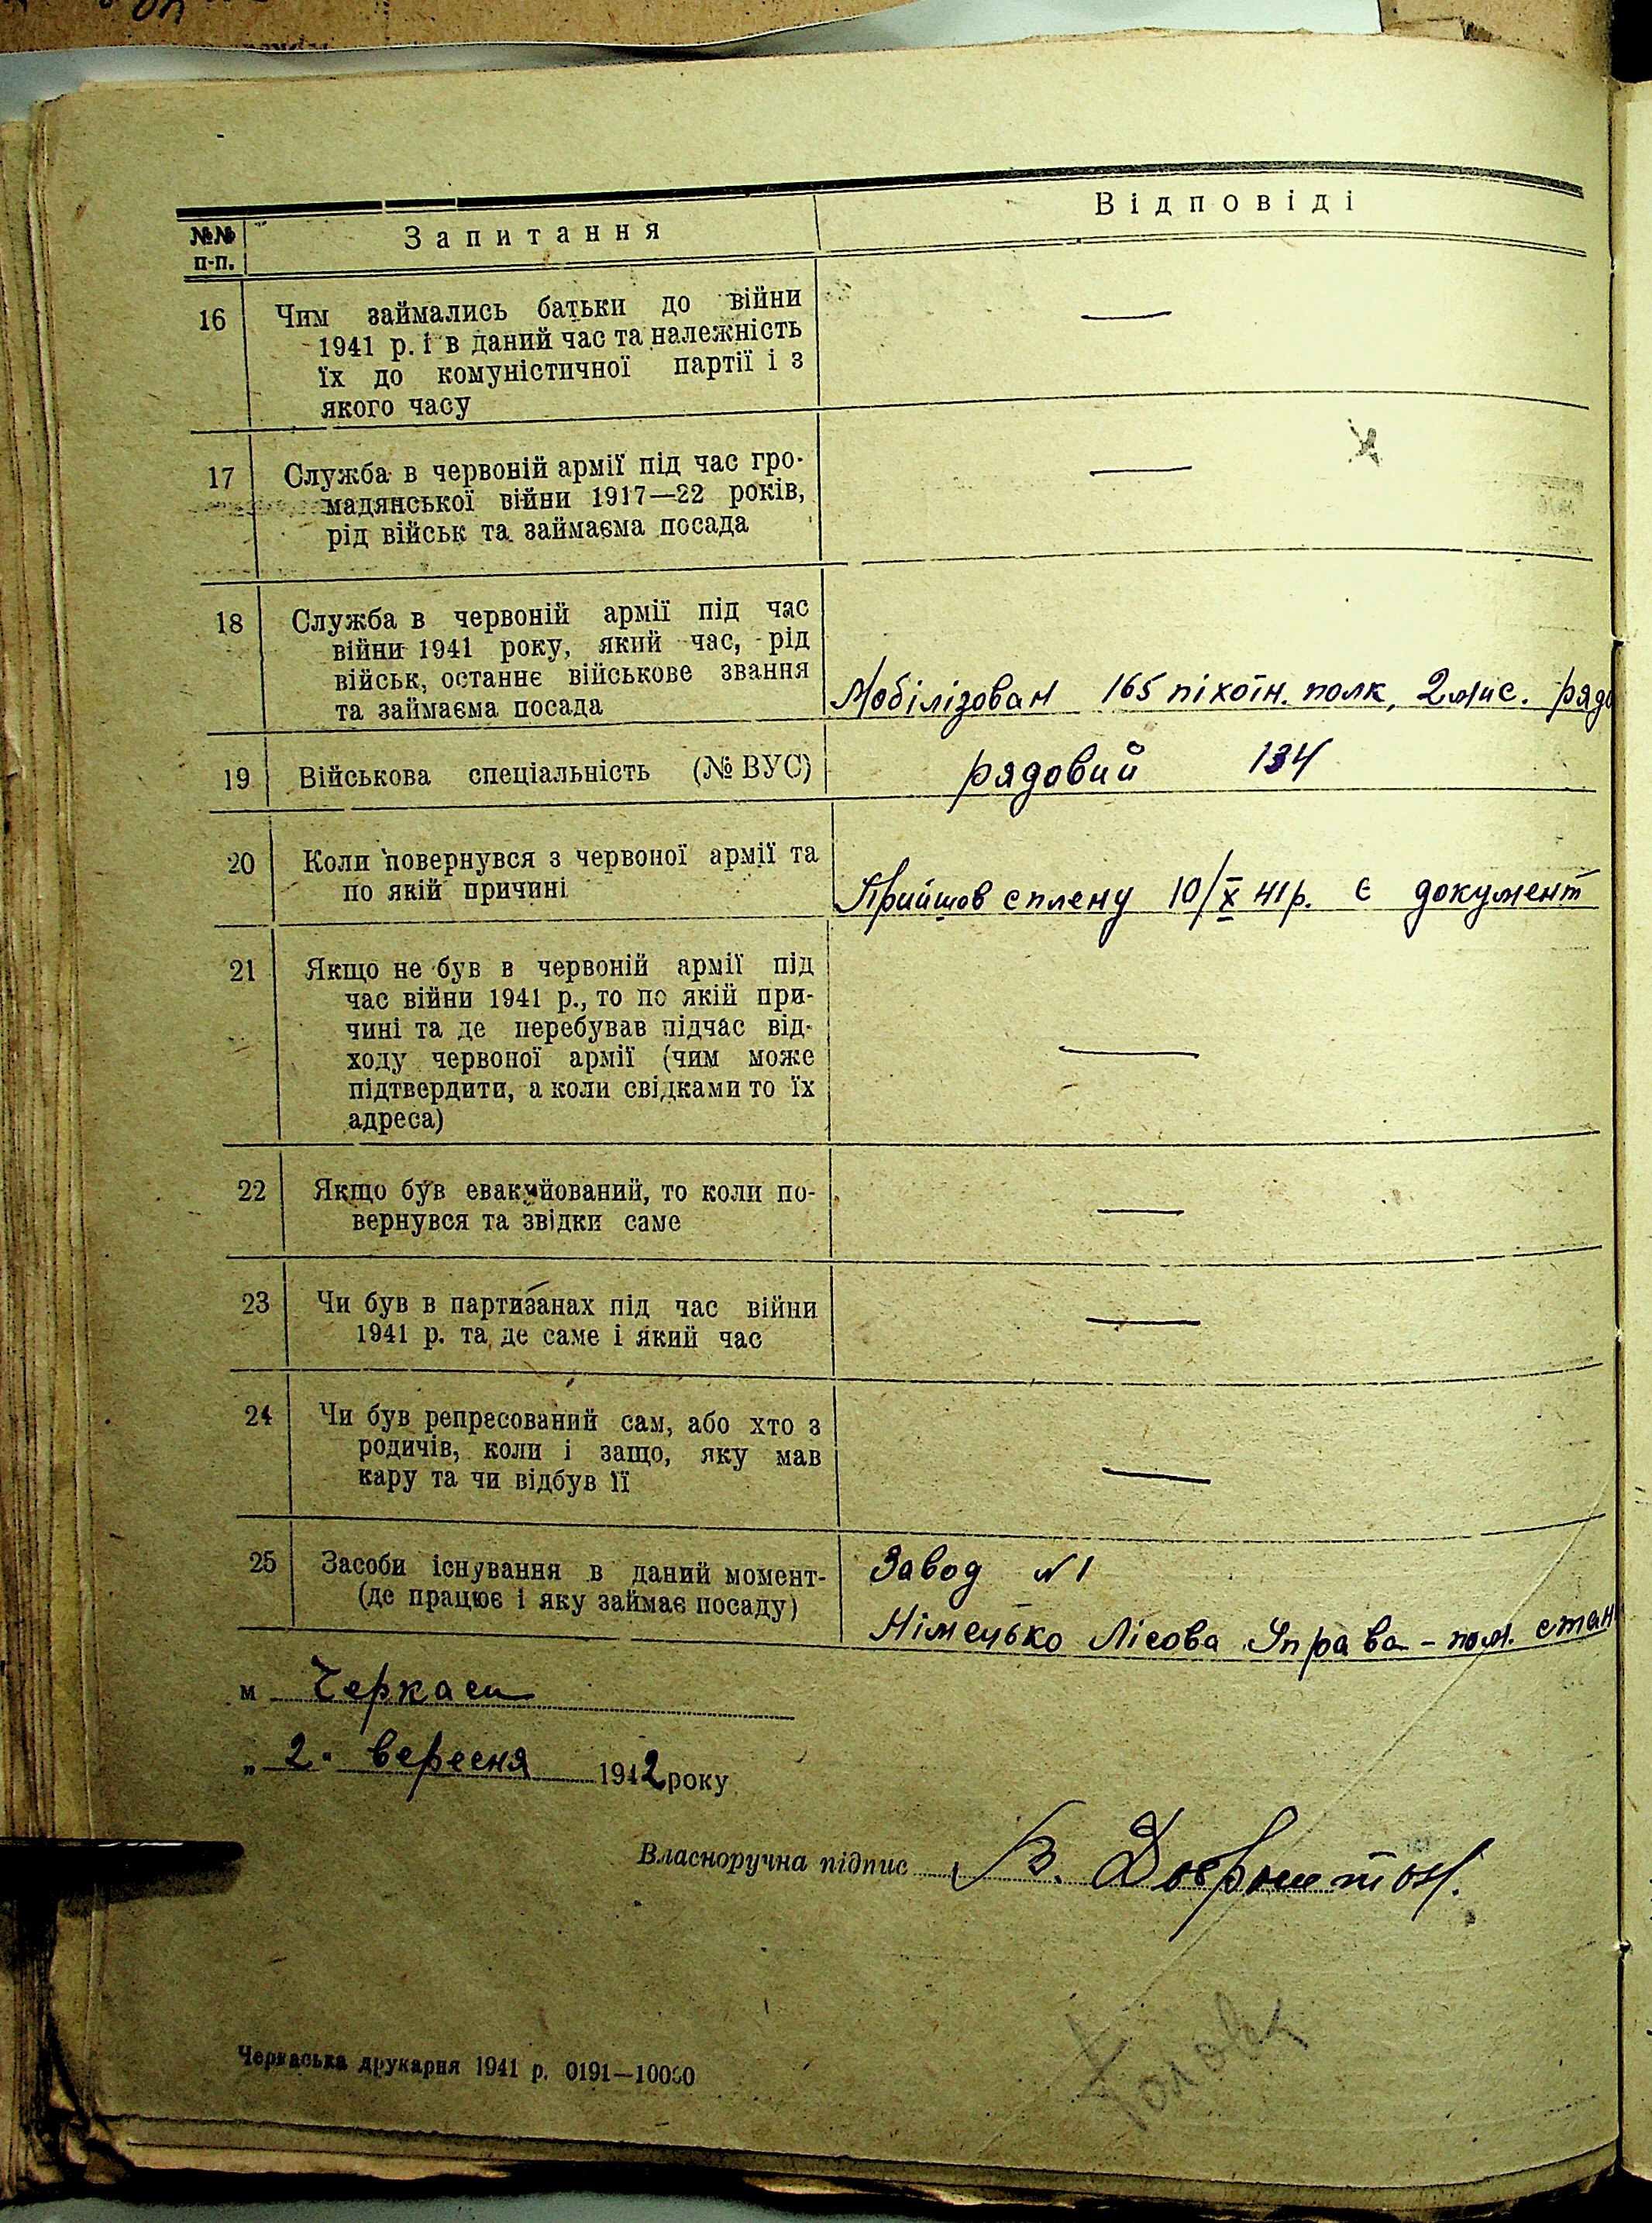 №№ п-п. Запитання Відповіді
16 Чим займались батьки до війни
1941 р. і в даний час та належність
їх до комуністичної партії і з
якого часу —
17 Служба в червоній армії під час гро-
мадянської війни 1917—22 років,
рід військ та займаєма посада —
18 Служба в червоній армії під час
війни 1941 року, який час, рід
військ, останнє військове звання
та займаєма посада Мобілізован 165 піхотн. полк, 2 міс. рядо
19 Військова спеціальність (№ ВУС) рядовий 134
20 Коли повернувся з червоної армії та
по якій причині Прийшов с плену 10/X 41 р. є документ
21 Якщо не був в червоній армії під
час війни 1941 р., то по якій при-
чині та де перебував підчас від-
ходу червоної армії (чим може
підтвердити, а коли свідками то їх
адреса) —
22 Якщо був евакуйований, то коли по-
вернувся та звідки саме —
23 Чи був в партизанах під час війни
1941 р. та де саме і який час —
24 Чи був репресований сам, або хто з
родичів, коли і защо, яку мав
кару та чи відбув її —
25 Засоби існування в даний момент-
(де працює і яку займає посаду)
Завод №1
Німецько Лісова Управа - пом. стан
м Черкаси
„2" вересня 1942 року
Власноручна підпис В.
Черкаська друкарня 1941 р. 0191—10000